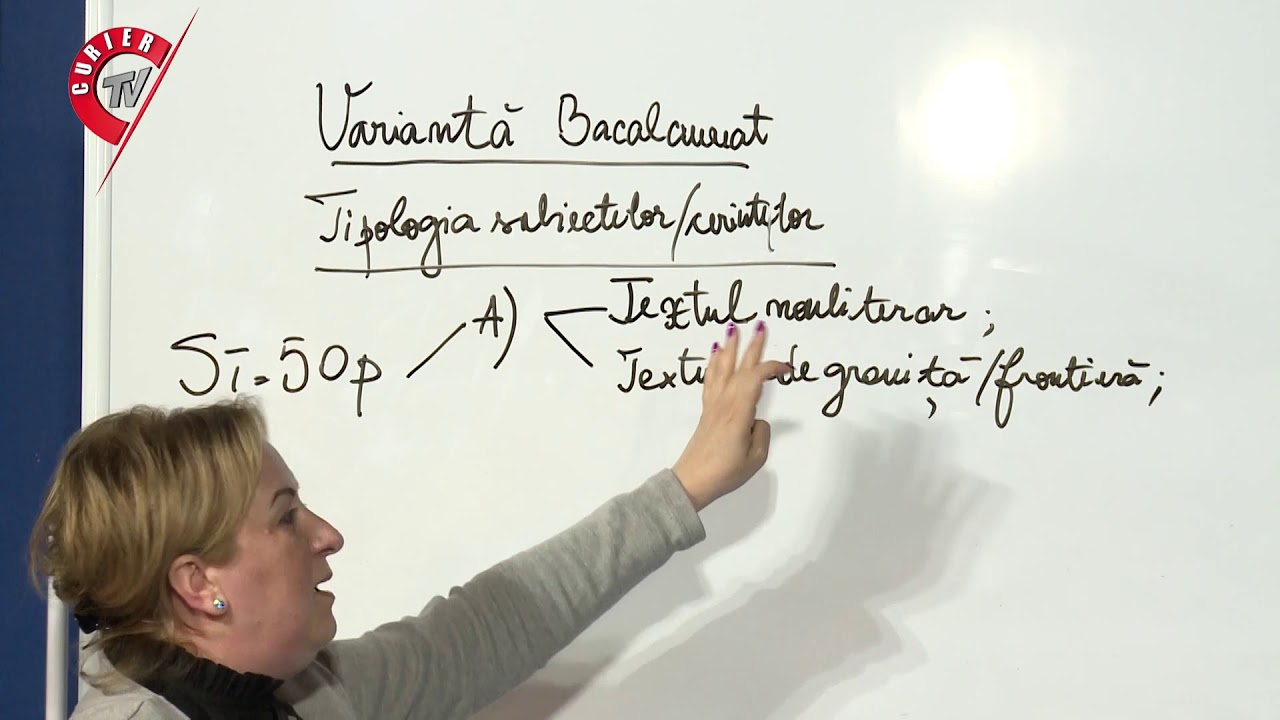 CURIER TV
Variantă Bacalaureat
Tipologia subiectelor/cerințelor
SI = 50p A) Textul nonliterar;
de graniță/frontieră;